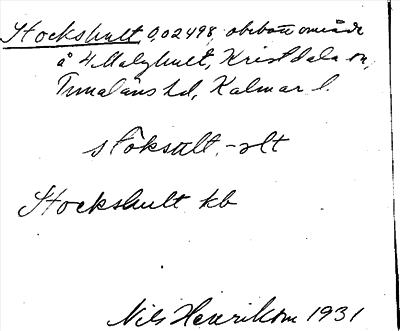 Stockshult 0,02498, obebott område
å 4 Malghult, Kristdala sn,
Tunaläns hd, Kalmar l.
stoksult, -ɷlt
Stockshult kb
Nils Henrikson 1931